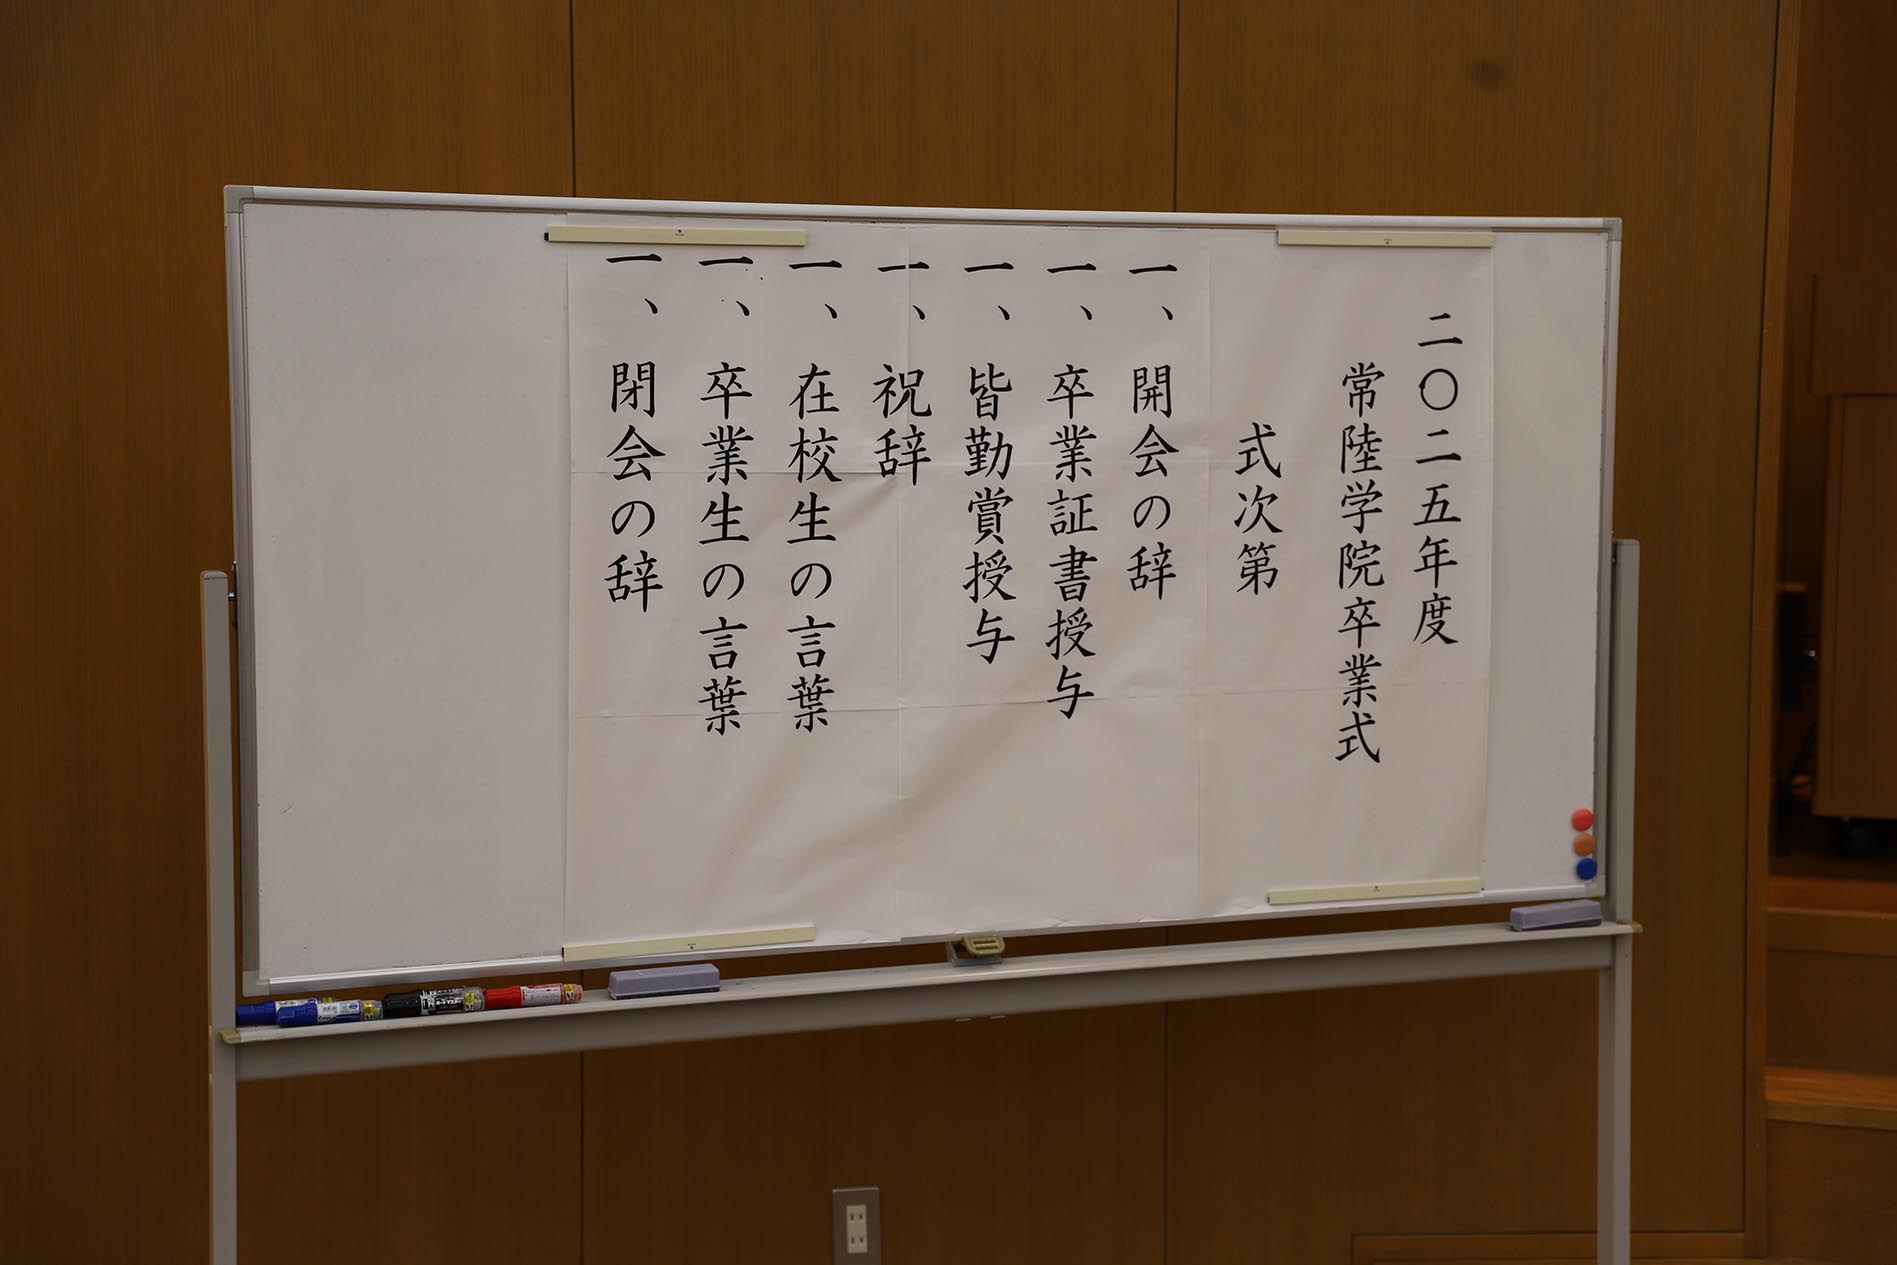 二〇二五年度
常陸学院卒業式
式次第
一、開会の辞
一、卒業証書授与
一、皆勤賞授与
一、祝辞
一、在校生の言葉
一、卒業生の言葉
一、閉会の辞